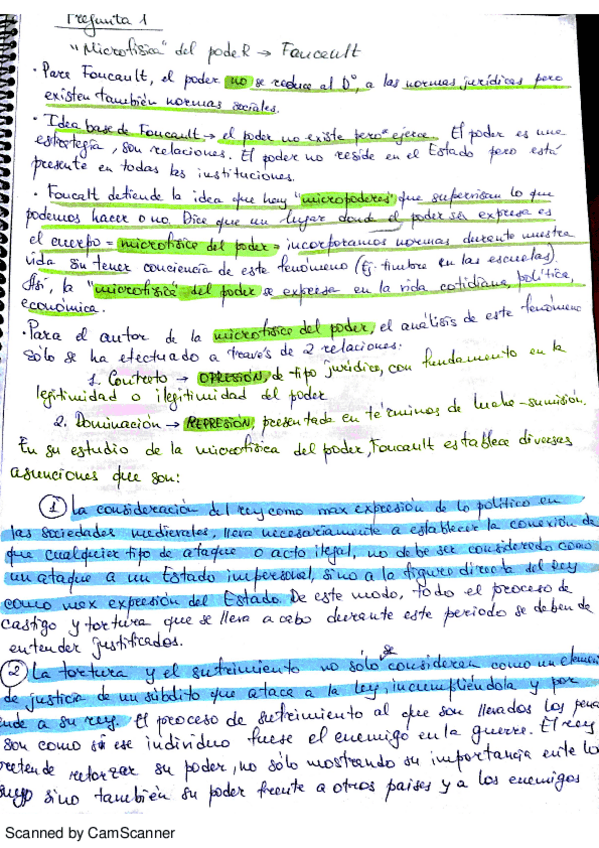 Pregunta 1
"Microfísica" del podeR → Foucault
· Para Foucault, el poder no se reduce al Dº, a las normas jurídicas pero
existen también normas sociales.
· Idea base de Foucault → el poder no existe pero se ejerce. El poder es una
estrategia, son relaciones. El poder no reside en el Estado pero está
presente en todas las instituciones.
· Foucalt defiende la idea que hay "micropoderes" que supervisan lo que
podemos hacer o no. Dice que un lugar donde el poder se expresa es
el cuerpo = microfísica del poder = incorporamos normas durante nuestra
vida sin tener conciencia de este fenómeno (Ej. timbre en las escuelas).
Así, la "microfísica" del poder se expresa en la vida cotidiana, política,
económica.
· Para el autor de la microfísica del poder, el análisis de este fenómeno
sólo se ha efectuado a través de 2 relaciones:
1. Contrato → OPRESIÓN, de tipo jurídico, con fundamento en la
legitimidad o ilegitimidad del poder
2. Dominación → REPRESIÓN, presentado en términos de lucha-sumisión.
En su estudio de la microfísica del poder, Foucault establece diversas
asunciones que son:
① La consideración del rey como max expresión de lo político en
las sociedades medievales, lleva necesariamente a establecer la conexión de
que cualquier tipo de ataque o acto ilegal, no debe ser considerado como
un ataque a un Estado impersonal, sino a la figura directa del Rey
como max expresión del Estado. De este modo, todo el proceso de
castigo y tortura que se lleva a cabo durante este periodo se deben de
entender justificados.
② La tortura y el sufrimiento no sólo se consideran como un elemen
de justicia de un súbdito que ataca a la ley, incumpliéndola y por
ende a su rey. El proceso de sufrimiento al que son llevados los pena
son como si ese individuo fuese el enemigo en la guerra. El rey
pretende reforzar su poder, no sólo mostrando su importancia ante lo
suyo sino también su poder frente a otros países y a los enemigos
Scanned by CamScanner